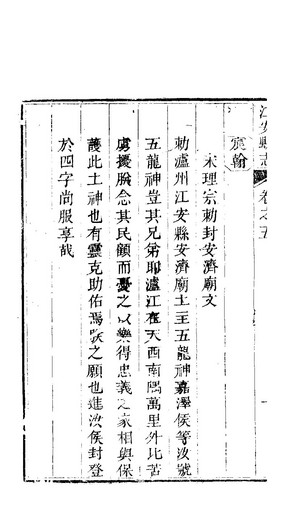 江安縣志 卷之五
宸翰
宋理宗勅封安濟廟文
勅瀘州江安縣安濟廟土主五龍神嘉澤侯等汝號
五龍神豈其兄弟耶瀘江在天西南隅萬里外比苦
虜擾朕念其民顧而憂之以樂得忠義之家相與保
護此土神也有靈克助佑焉朕之願也進汝侯封登
於四字尚服享哉